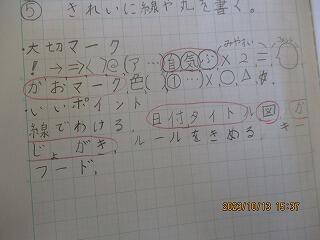 ⑤ きれいに線や丸を書く。
・大切マーク みやすい
! → ⇒ < ? @, (ア … ) 首 気 ぶ × 2 =,
かおマーク, 色( ) ① … ) ×, 〇, △, ☆
・いいポイント
線でわける, 日付, タイトル, 図, か
じょがき, ルールをきめる, キー
フード,
2023/10/13 15:37